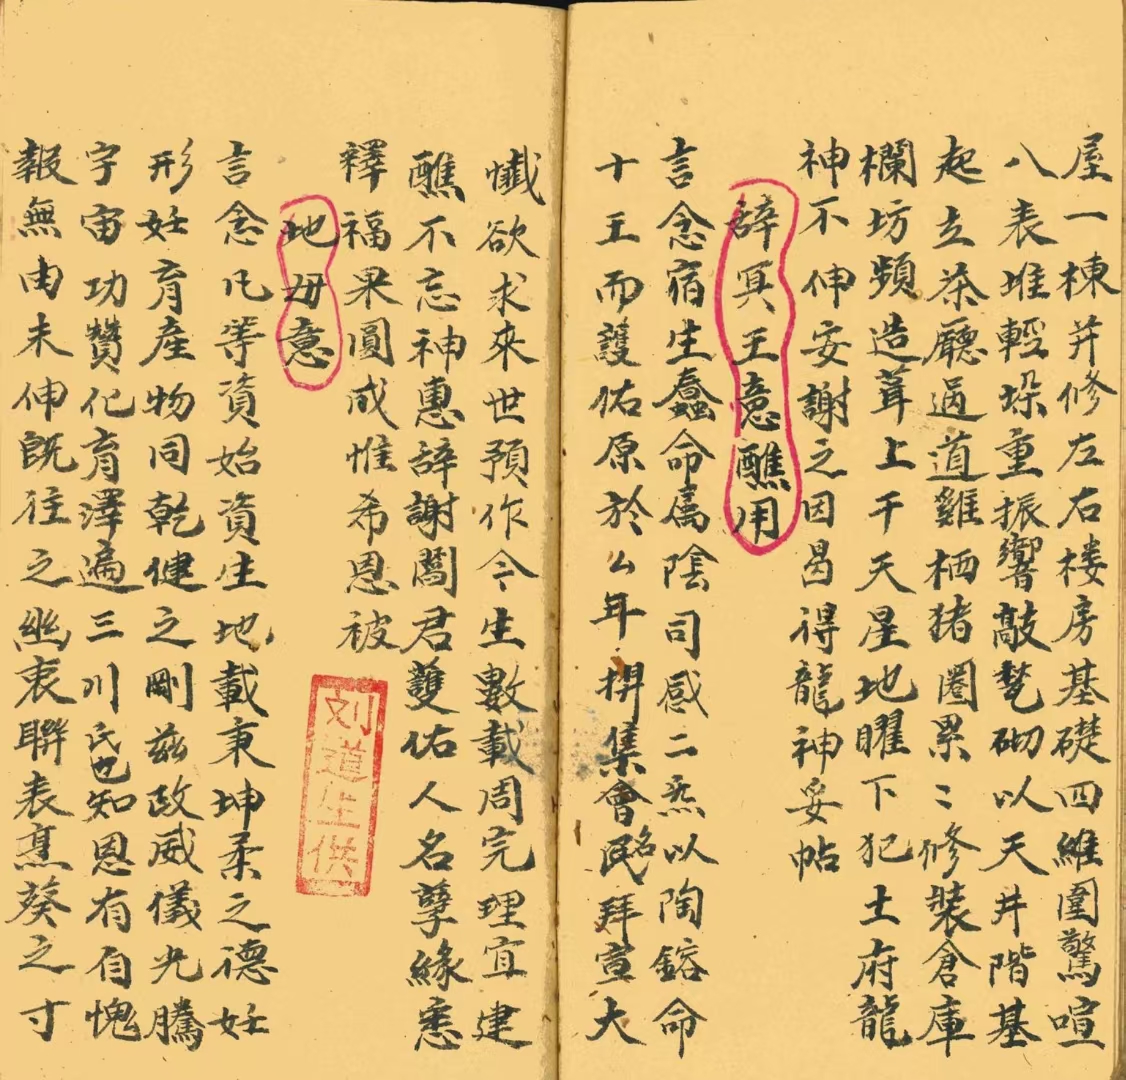 屋一棟并修左右楼房基礎四維圍驚喧
八表堆輕垛重振響敲甃砌以天井階基
起立茶廳過道雞栖猪圈累〻修裝倉庫
欄坊頻造葺上干天星地曜下犯土府龍
神不伸安謝之因曷得龍神妥帖
辞冥王意醮用
言念宿生蠢命属陰司感二炁以陶鎔命
十王而護佑原於厶年搆集會民名拜宣大
懺欲求來世預作今生數載周完理宜建
醮不忘神惠辞謝閻君護佑人名孽緣悉
釋福果圓成惟希恩被
地毋意
言念凡等資始資生地載秉坤柔之德妊
形妊育產物同乾健之剛兹政威儀光騰
字宙功贊化育澤遍三川民也知恩有自愧
報無由未伸既往之 衷聯表葵之寸
刘道生供